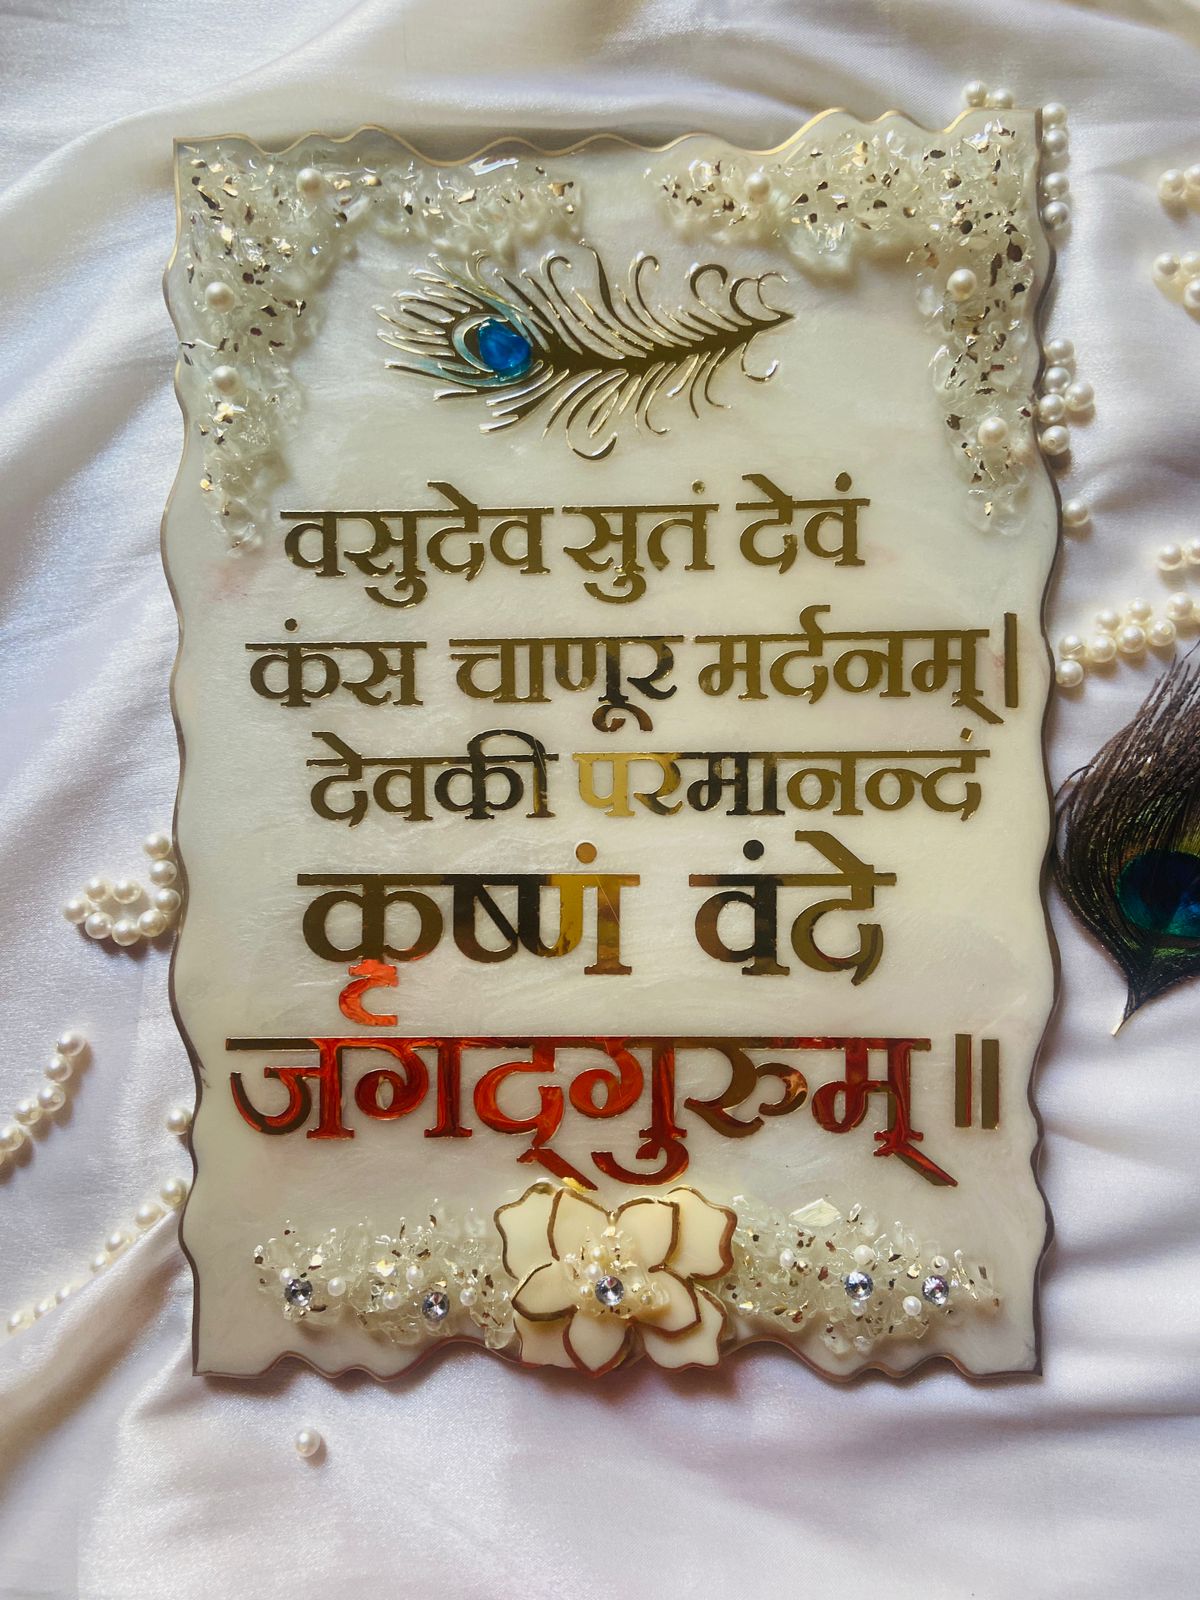 वसुदेव सुतं देवं
कंस चाणूर मर्दनम्।
देवकी परमानन्दं
कृष्णं वंदे
जगद्गुरुम्॥